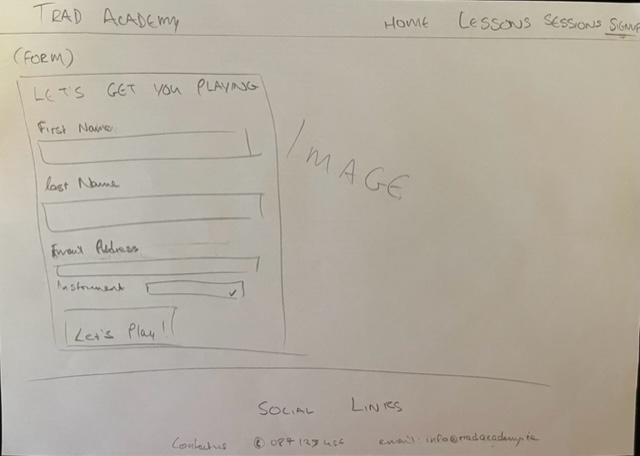 TRAD ACADEMY
HOME LESSONS SESSIONS SIGNUP
(FORM)
LET'S GET YOU PLAYING
First Name
last Name
IMAGE
Email Address
Instrument
Let's Play!
SOCIAL LINKS
Contact us 087 123 456 email: info@tradacademy.ie